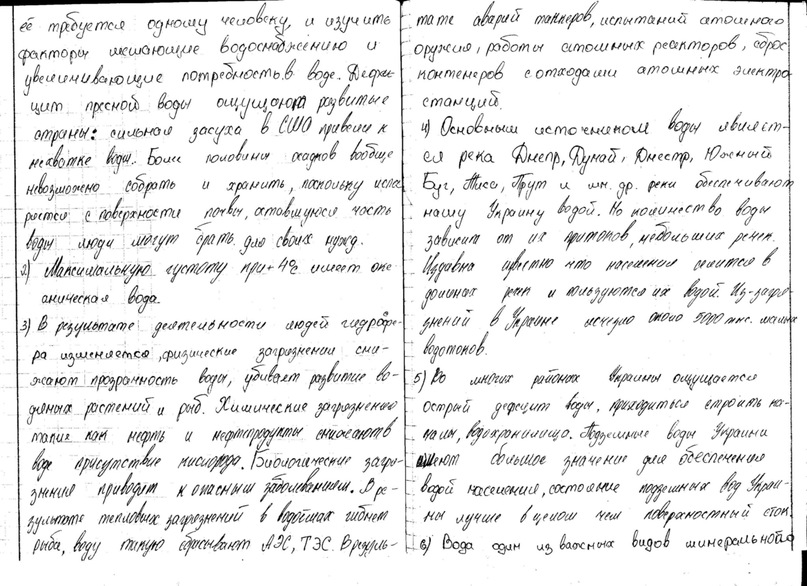 её требуется одному человеку, и изучить
факторы мешающие водоснабжению и
увеличивающие потребность в воде. Дефи-
цит пресной воды ощущают развитые
страны: сильная засуха в США привели к
нехватке воды. Более половины осадков вообще
невозможно собрать и хранить, поскольку испа
ряется с поверхности почвы, оставшуюся часть
воды люди могут брать для своих нужд.
2) Максимальную густоту при +4°C имеет оке
аническая вода.
3) В результате деятельности людей гидросфе-
ра изменяется, физические загрязнении сни-
жают прозрачность воды, убивает развитие во-
дяных растений и рыб. Химические загрязнению
такие как нефть и нефтпродукты снижают в
воде присутствие кислорода. Биологические загря-
знения приводят к опасным заболеваниям. В ре-
зультате тепловых загрязнений в водоёмах гибнет
рыба, воду такую сбрасывают АЭС, ТЭС. В резуль-
тате аварий танкеров, испытаний атомного
оружия, работы атомных реакторов, сброс
контенеров с отходами атомных электро
станций.
4) Основным источником воды являет-
ся река Днепр, Дунай, Днестр, Южный
Буг, Тиса, Прут и мн. др. реки обеспечивают
нашу Украину водой. Но количество воды
зависит от их притоков, небольших речек.
Издавна известно что население селится в
долинах рек и пользуются их водой. Из-загря-
знений в Украине исчезло около 5000 тыс. малых
водотоков.
5) Во многих районах Украины ощущается
острый дефицит воды, приходиться строить ка-
налы, водохранилища. Подземные воды Украини
имеют большое значение для обеспечения
водой население, состояние подземных вод Украи-
ны лучше в целом чем поверхностный сток.
6) Вода один из важных видов минерального